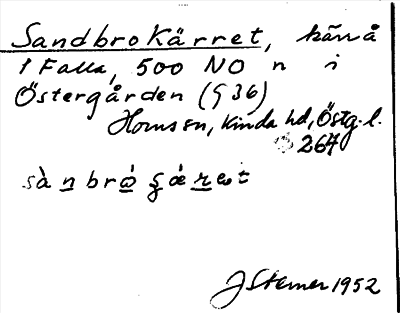 SandbroKärret, kärr å
1 Falla, 500 NO n i
Östergården (§ 36)
Horns sn, Kinda hd, Östg. l.
267
sànbrὼ ςǽret
J Sterner 1952